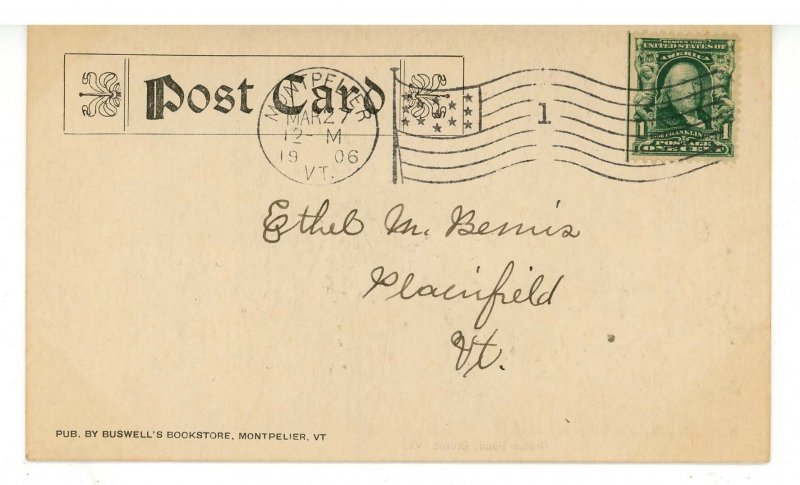 Post Card
MONTPELIER
MAR 27
12-M
19 06
VT.
1
SERIES 1902
UNITED STATES OF
AMERICA
1 FRANKLIN 1
POSTAGE
ONE CENT
Ethel M. Bemis
Plainfield
Vt.
PUB. BY BUSWELL'S BOOKSTORE, MONTPELIER, VT